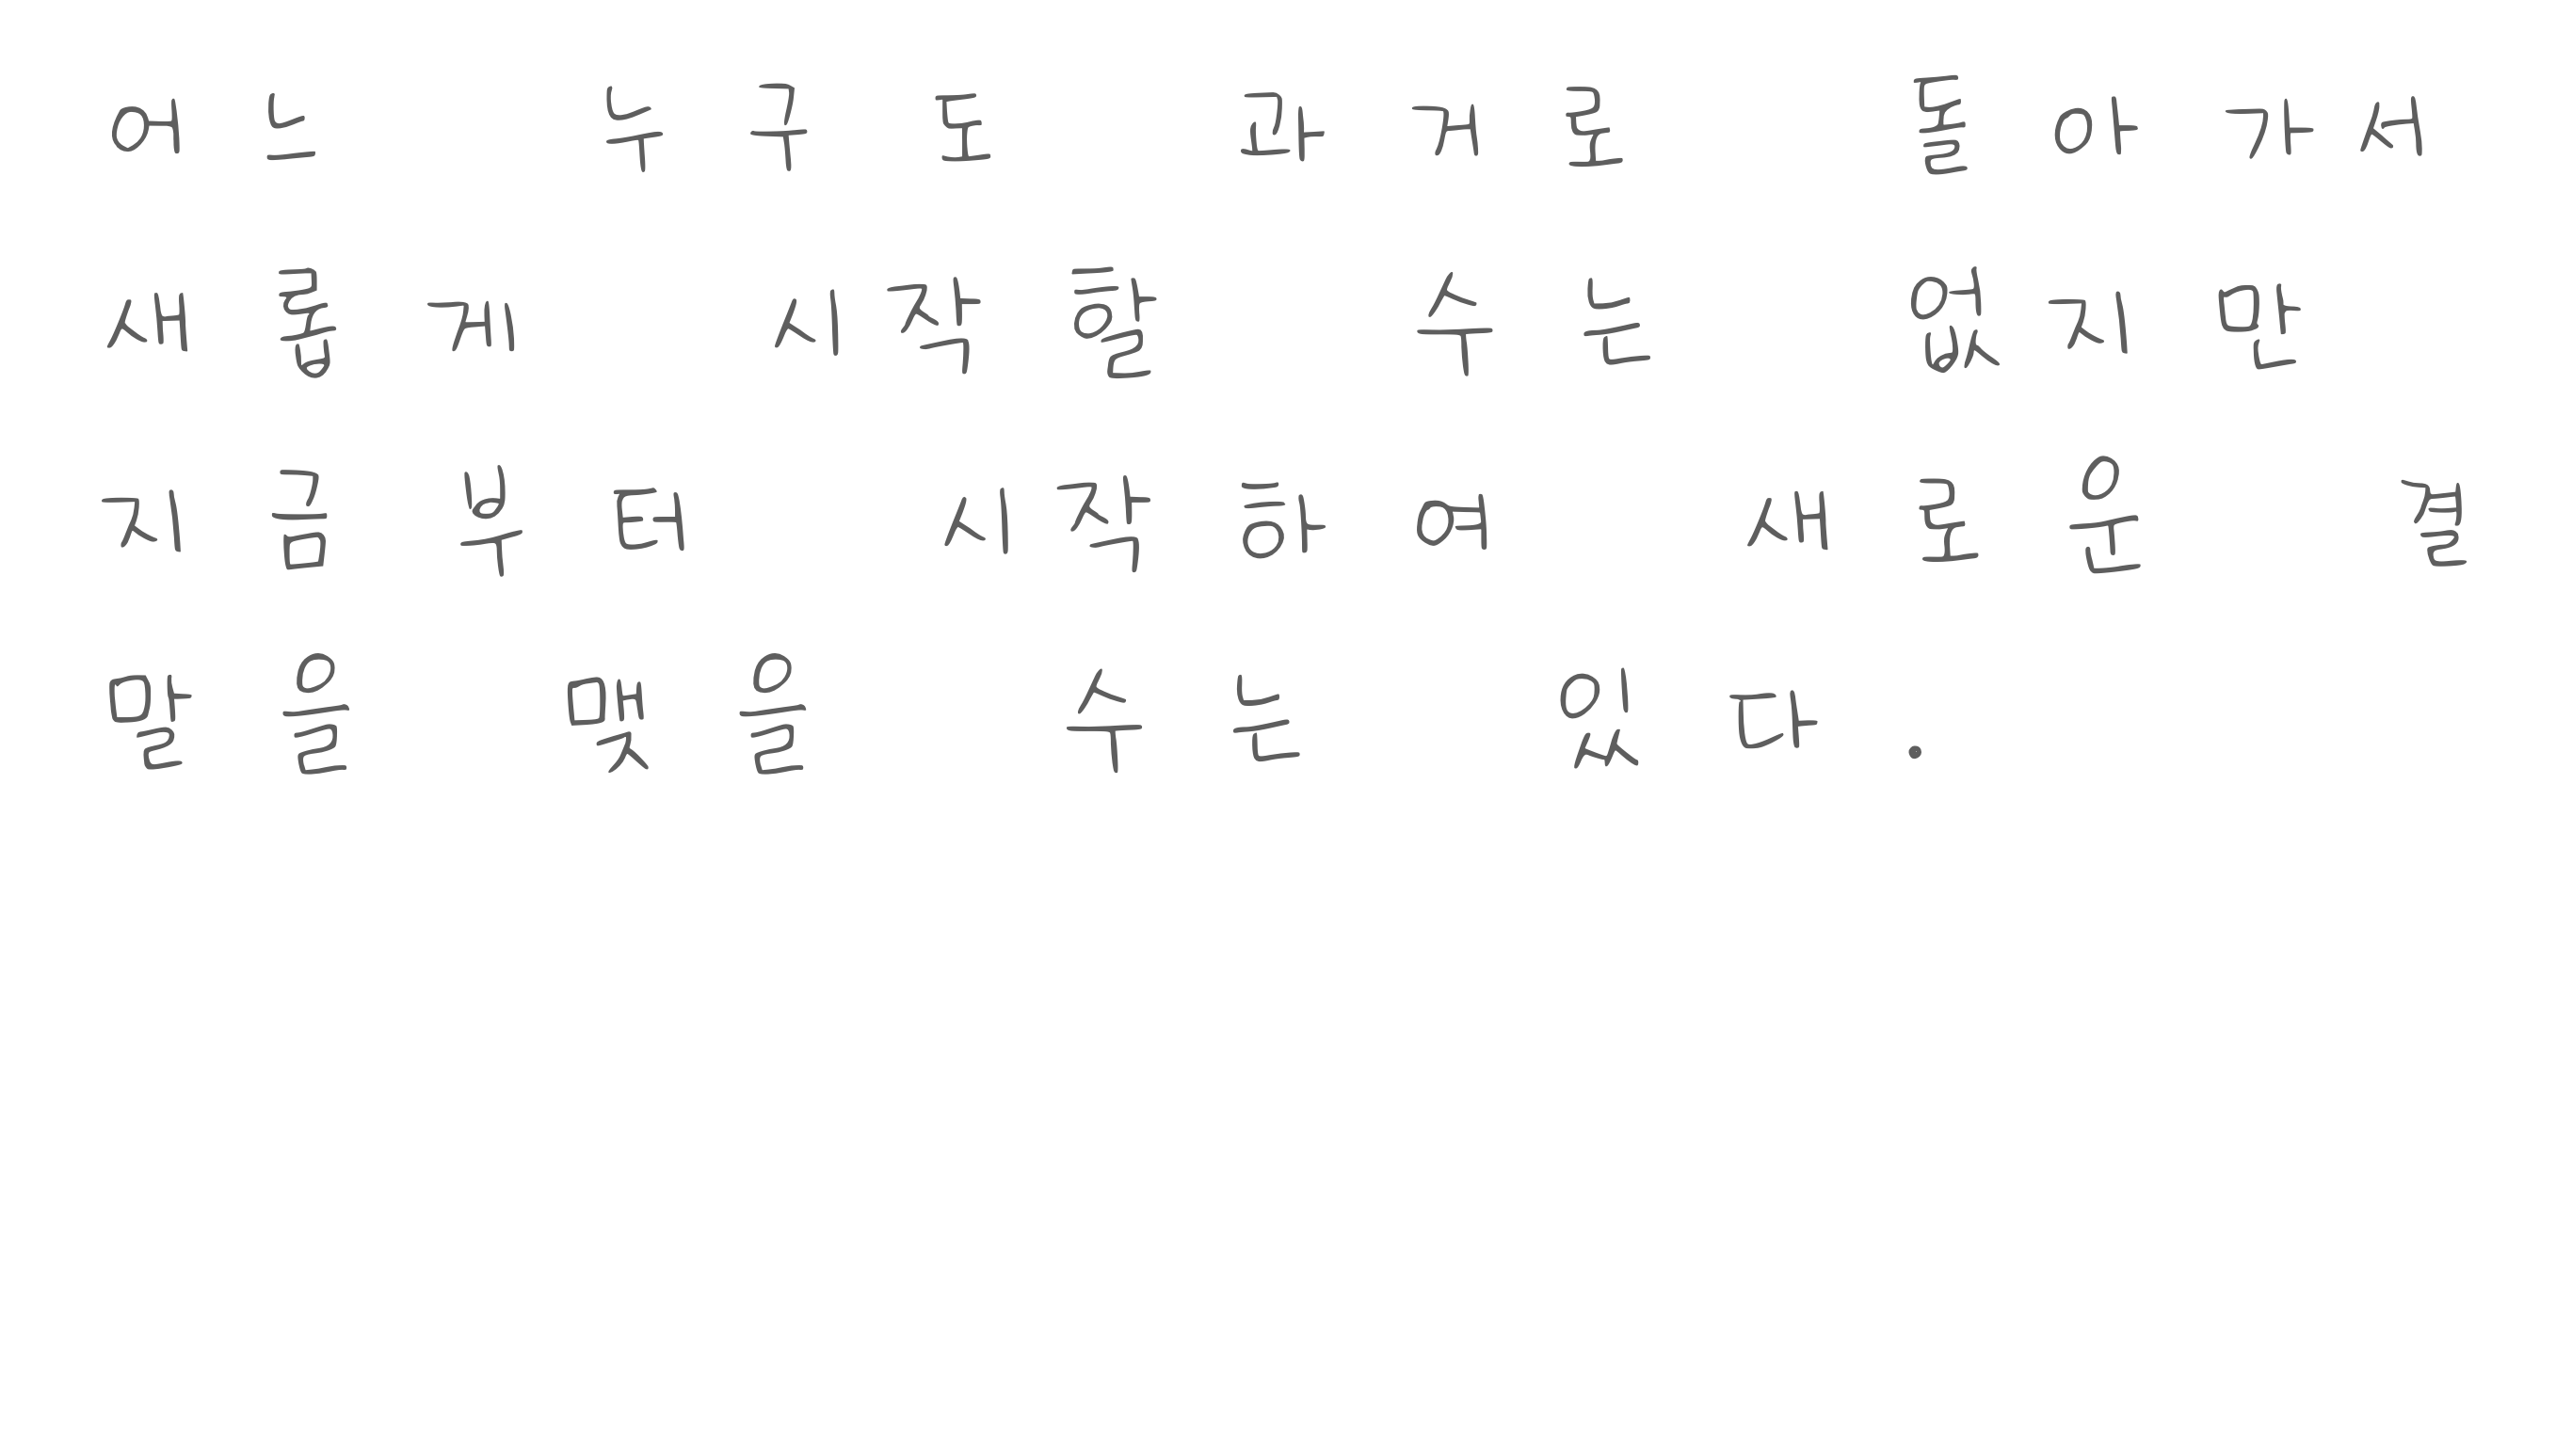 어느 누구도 과거로 돌아가서
새롭게 시작할 수는 없지만
지금부터 시작하여 새로운 결
말을 맺을 수는 있다.